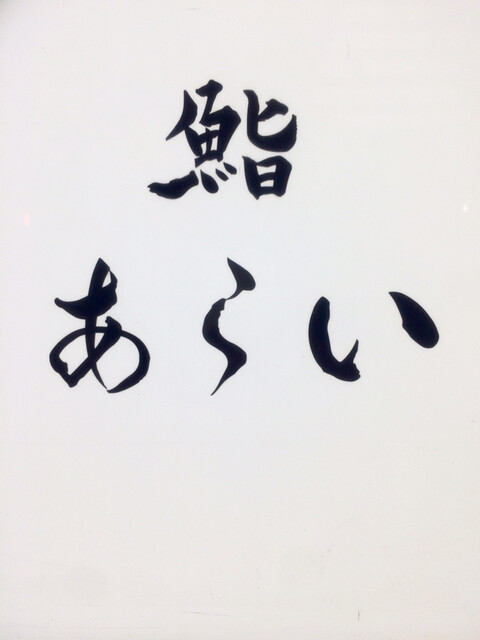 鮨
あらい